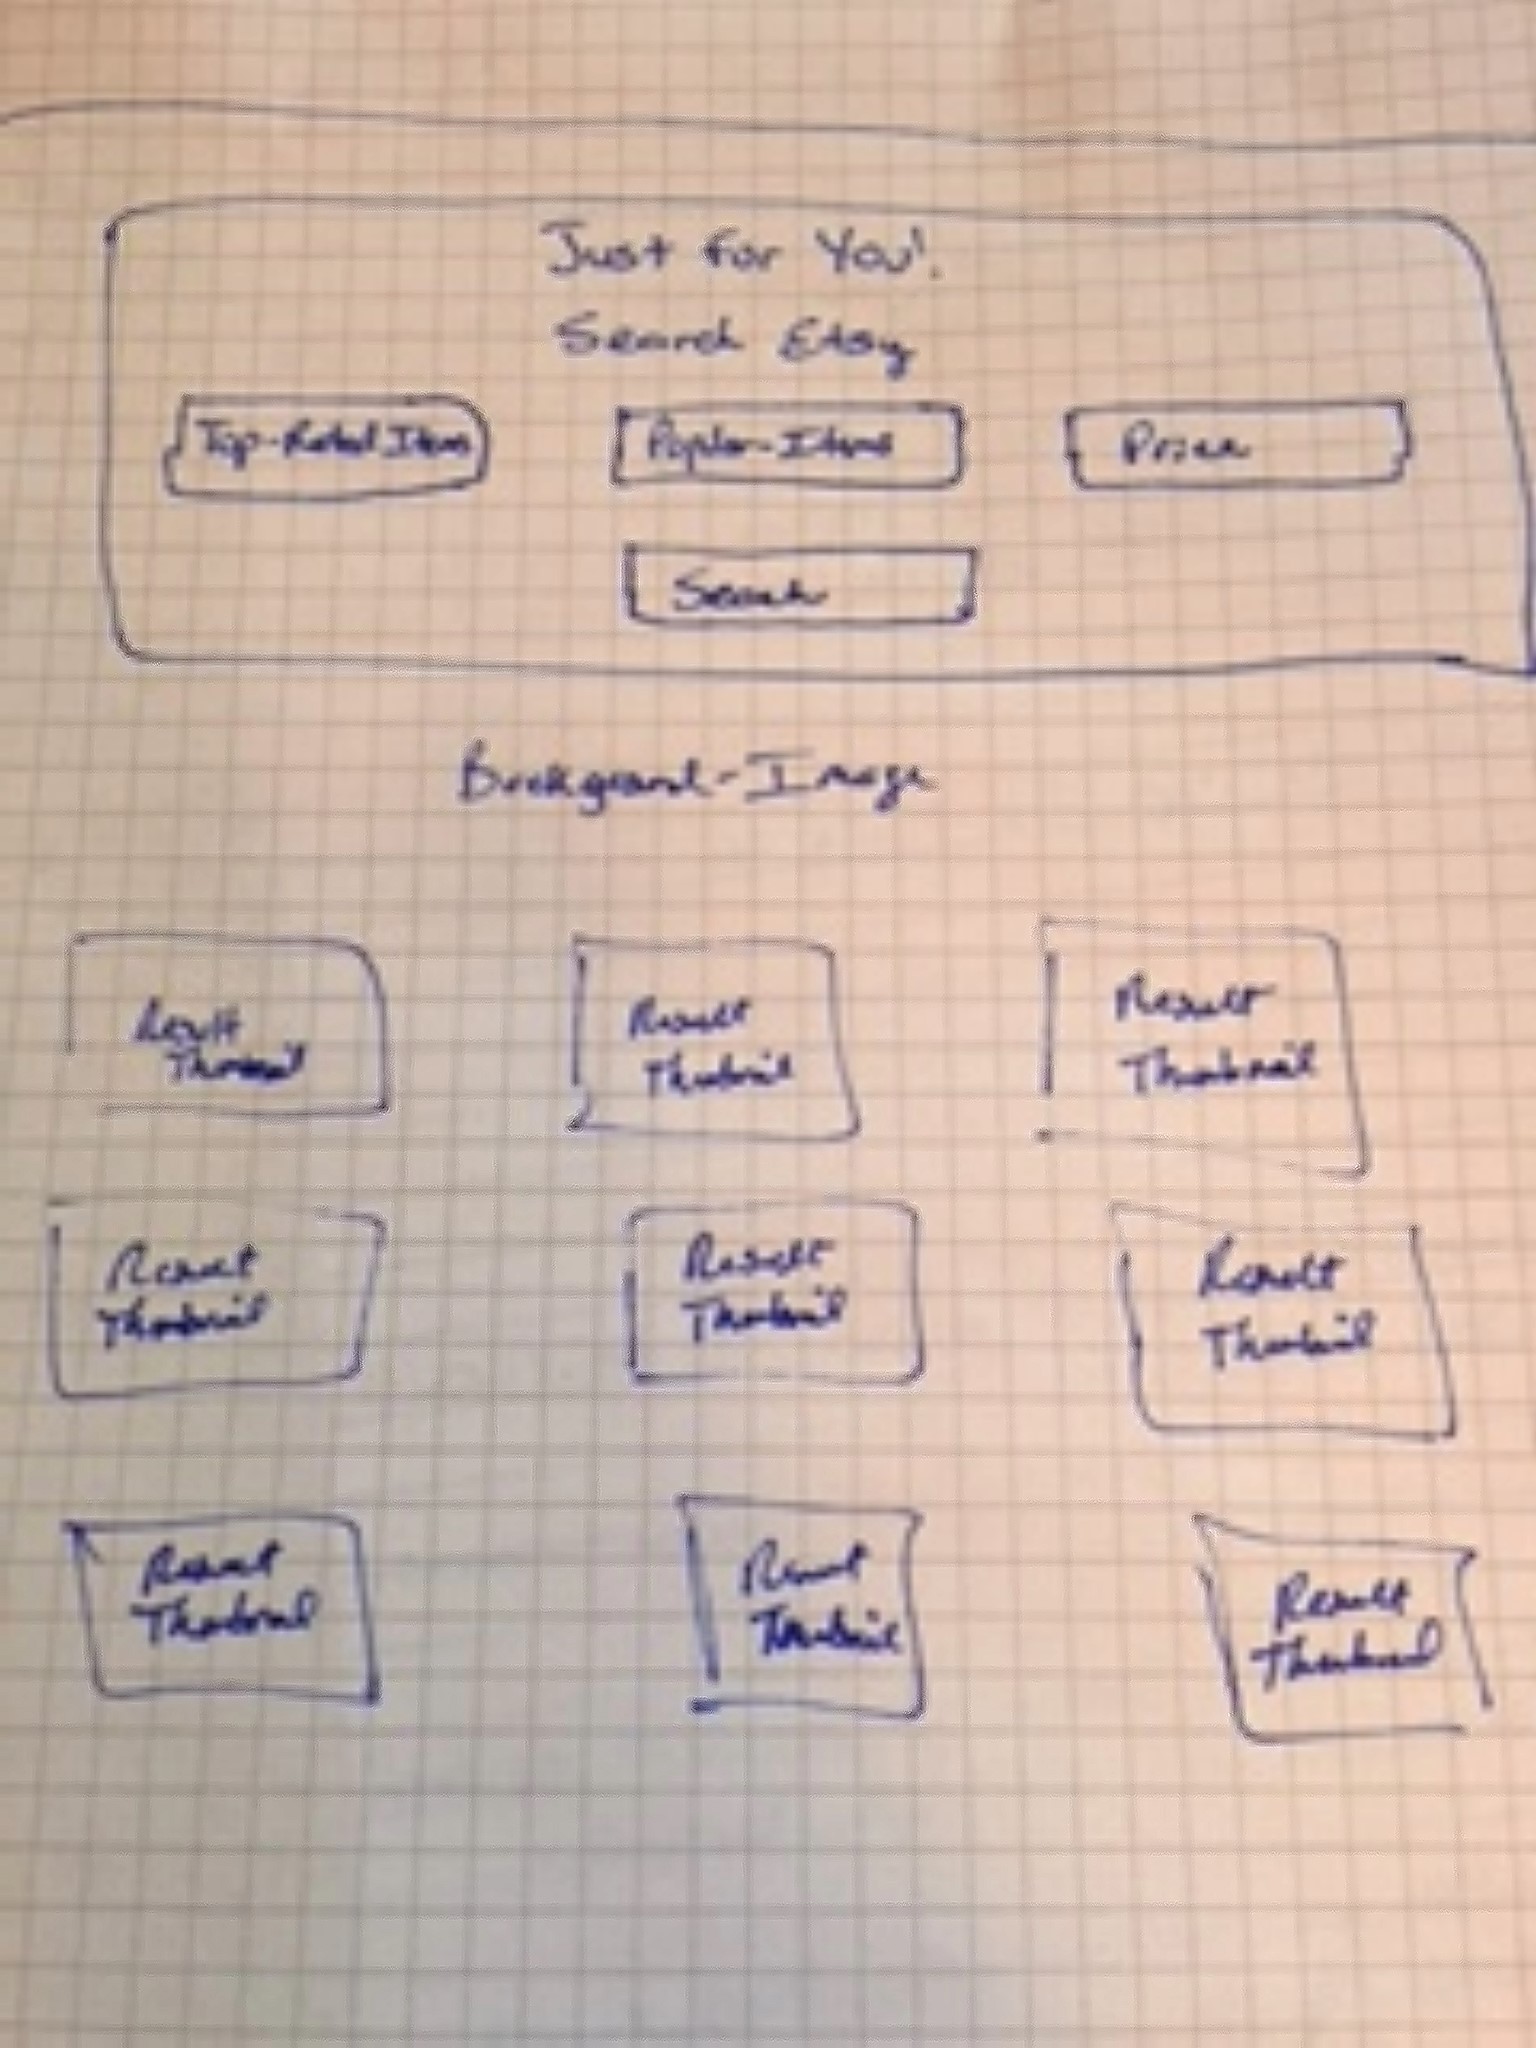 Just For You!
Search Etsy
Top-Rated Items
Popular-Items
Price
Search
Background-Image
Result
Thumbnail
Result
Thumbnail
Result
Thumbnail
Result
Thumbnail
Result
Thumbnail
Result
Thumbnail
Result
Thumbnail
Result
Thumbnail
Result
Thumbnail